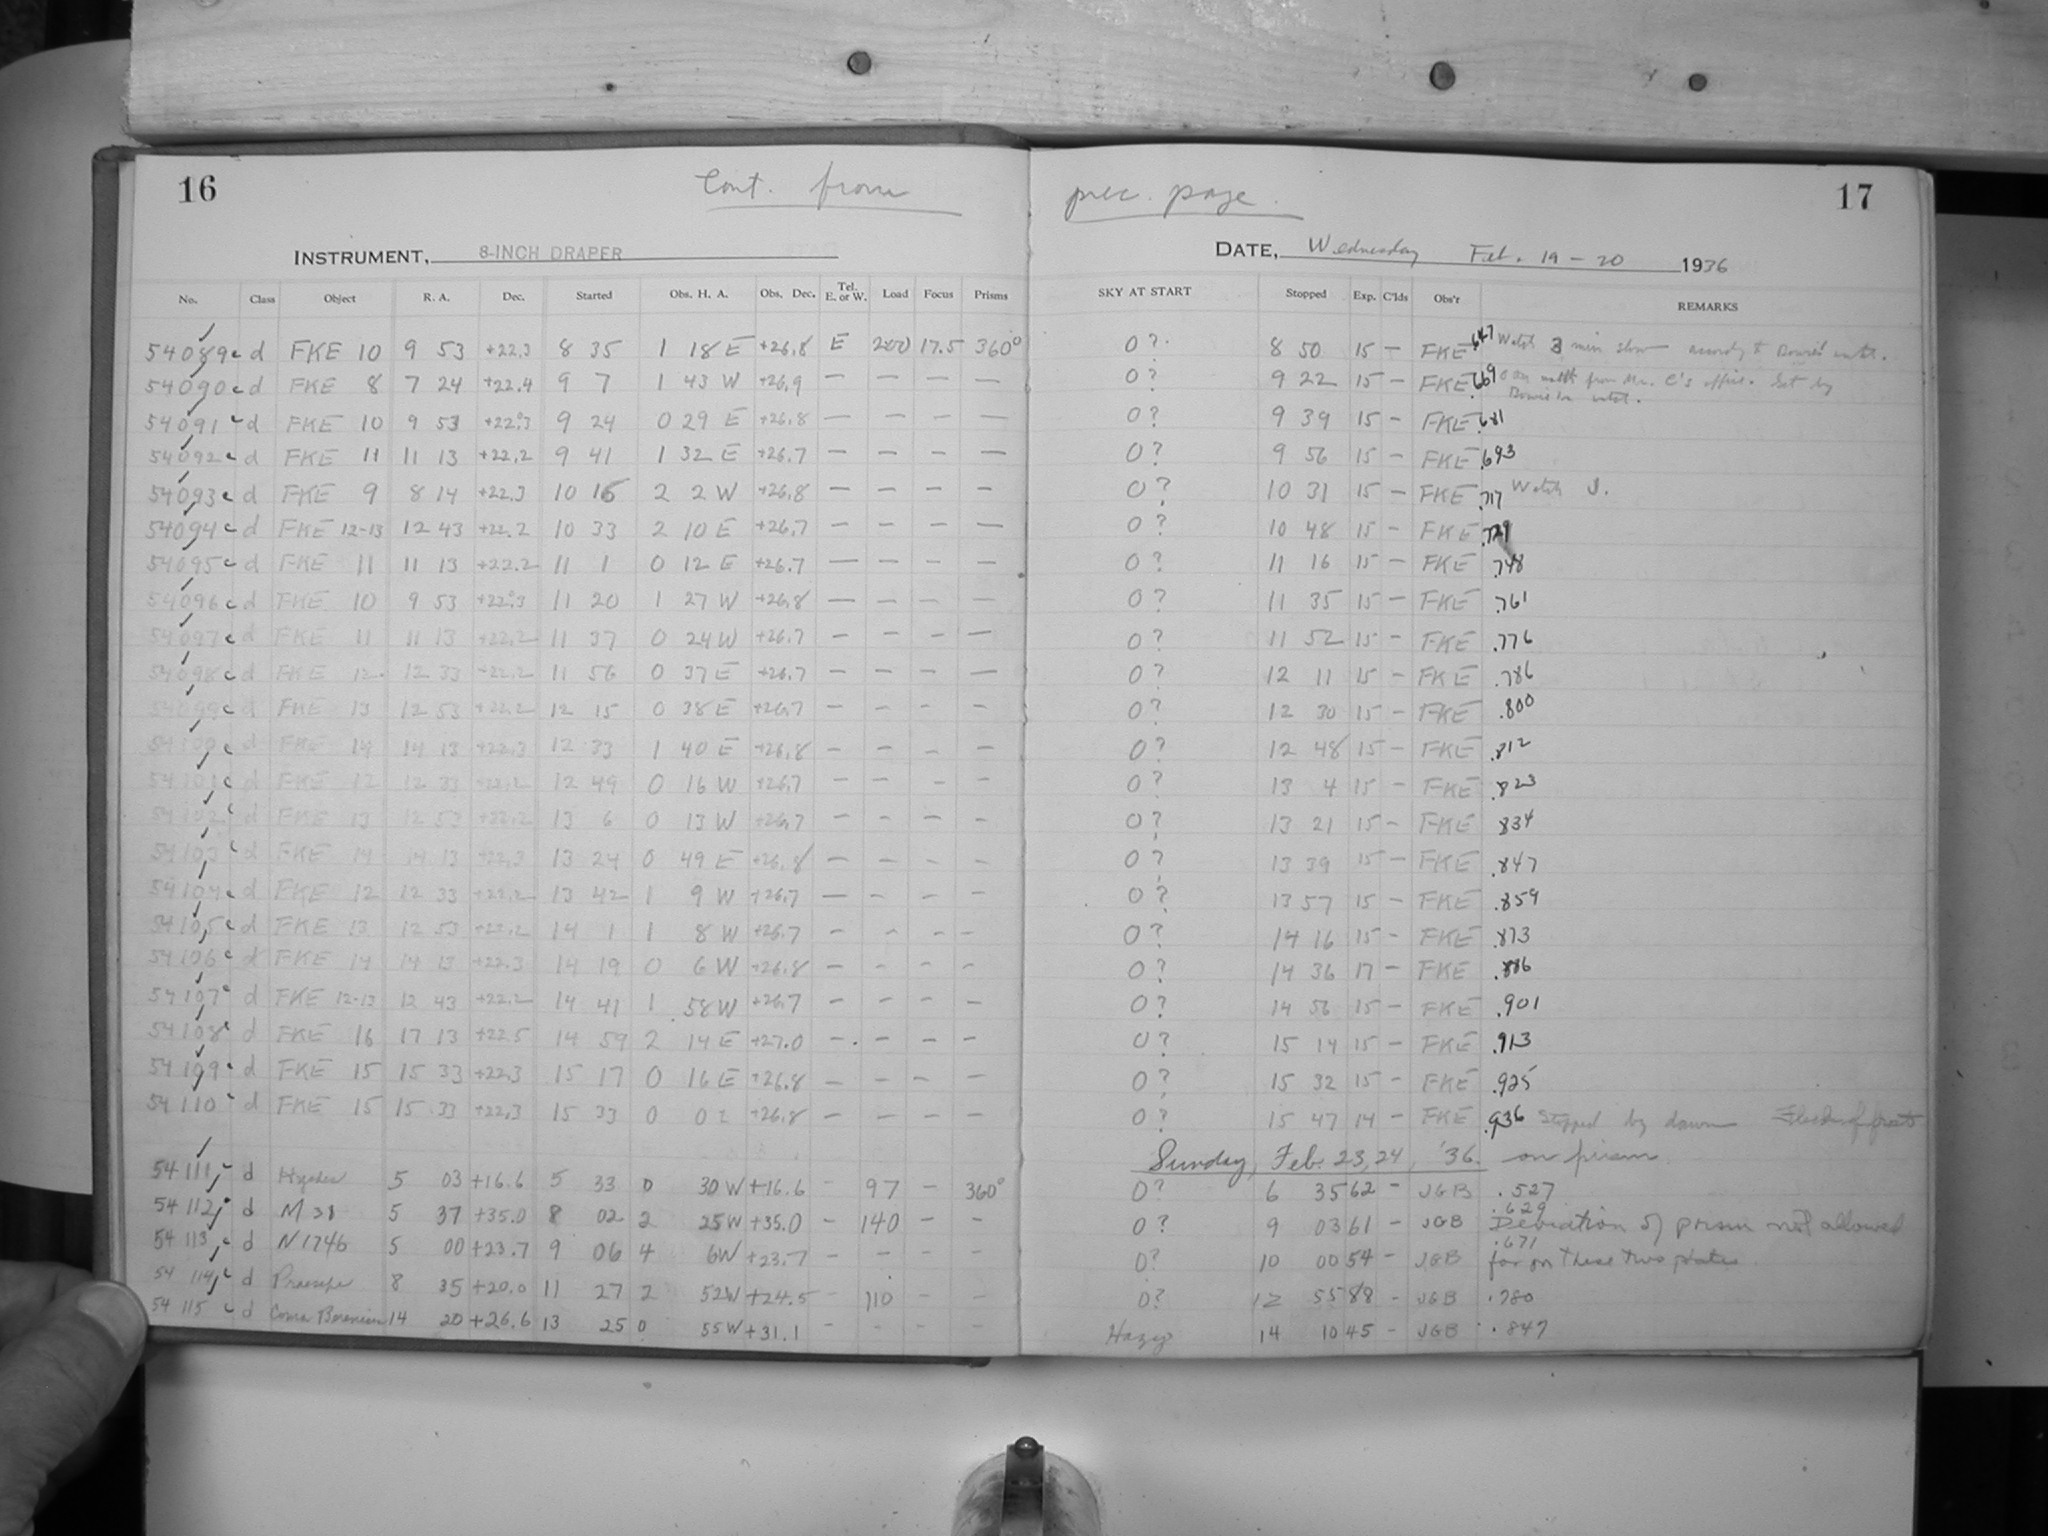 16 Cont. from prec. page. 17
INSTRUMENT, 8-INCH DRAPER DATE, Wednesday Feb. 19-20 1936
No. Class Object R. A. Dec. Started Obs. H. A. Obs. Dec. Tel. E. or W. Load Focus Prisms SKY AT START Stopped Exp. C'lds Obs'r REMARKS
54089 c d FKE 10 9 53 +22.3 8 35 1 18 E +26.8 E 200 17.5 360° 0? 8 50 15 — FKE .647 Watch 3 min slow
54090 c d FKE 8 7 24 +22.4 9 7 1 43 W +26.9 — — — — 0? 9 22 15 — FKE .669 from Mr. C's office. Set by
54091 c d FKE 10 9 53 +22.3 9 24 0 29 E +26.8 — — — — 0? 9 39 15 — FKE .681
54092 c d FKE 11 11 13 +22.2 9 41 1 32 E +26.7 — — — — 0? 9 56 15 — FKE .693
54093 c d FKE 9 8 14 +22.3 10 16 2 2 W +26.8 — — — — 0? 10 31 15 — FKE .717 Watch
54094 c d FKE 12-13 12 43 +22.2 10 33 2 10 E +26.7 — — — — 0? 10 48 15 — FKE .729
54095 c d FKE 11 11 13 +22.2 11 1 0 12 E +26.7 — — — — 0? 11 16 15 — FKE .748
54096 c d FKE 10 9 53 +22.3 11 20 1 27 W +26.8 — — — — 0? 11 35 15 — FKE .761
54097 c d FKE 11 11 13 +22.2 11 37 0 24 W +26.7 — — — — 0? 11 52 15 — FKE .776
54098 c d FKE 12 12 33 +22.2 11 56 0 37 E +26.7 — — — — 0? 12 11 15 — FKE .786
54099 c d FKE 13 12 53 +22.2 12 15 0 38 E +26.7 — — — — 0? 12 30 15 — FKE .800
54100 c d FKE 14 14 13 +22.3 12 33 1 40 E +26.8 — — — — 0? 12 48 15 — FKE .812
54101 c d FKE 12 12 33 +22.2 12 49 0 16 W +26.7 — — — — 0? 13 4 15 — FKE .823
54102 c d FKE 13 12 53 +22.2 13 6 0 13 W +26.7 — — — — 0? 13 21 15 — FKE .834
54103 c d FKE 14 14 13 +22.3 13 24 0 49 E +26.8 — — — — 0? 13 39 15 — FKE .847
54104 c d FKE 12 12 33 +22.2 13 42 1 9 W +26.7 — — — — 0? 13 57 15 — FKE .859
54105 c d FKE 13 12 53 +22.2 14 1 1 8 W +26.7 — — — — 0? 14 16 15 — FKE .873
54106 c d FKE 14 14 13 +22.3 14 19 0 6 W +26.8 — — — — 0? 14 36 17 — FKE .886
54107 c d FKE 12-13 12 43 +22.2 14 41 1 58 W +26.7 — — — — 0? 14 56 15 — FKE .901
54108 c d FKE 16 17 13 +22.5 14 59 2 14 E +27.0 — — — — 0? 15 14 15 — FKE .913
54109 c d FKE 15 15 33 +22.3 15 17 0 16 E +26.8 — — — — 0? 15 32 15 — FKE .925
54110 c d FKE 15 15 33 +22.3 15 33 0 0 +26.8 — — — — 0? 15 47 14 — FKE .936 Stopped by dawn
Sunday, Feb. 23,24, '36. on prism
54111 c d Hyades 5 03 +16.6 5 33 0 30 W +16.6 - 97 - 360° 0? 6 35 62 - JGB .527
54112 c d M 38 5 37 +35.0 8 02 2 25 W +35.0 - 140 - - 0? 9 03 61 - JGB .629 Deviation of prism not allowed
54113 c d N1746 5 00 +23.7 9 06 4 6 W +23.7 - - - - 0? 10 00 54 - JGB .671 for on these two plates
54114 c d Praesepe 8 35 +20.0 11 27 2 52 W +24.5 - 110 - - 0? 12 55 88 - JGB .780
54115 c d Coma Berenices 14 20 +26.6 13 25 0 55 W +31.1 - - - - Hazy 14 10 45 - JGB .847